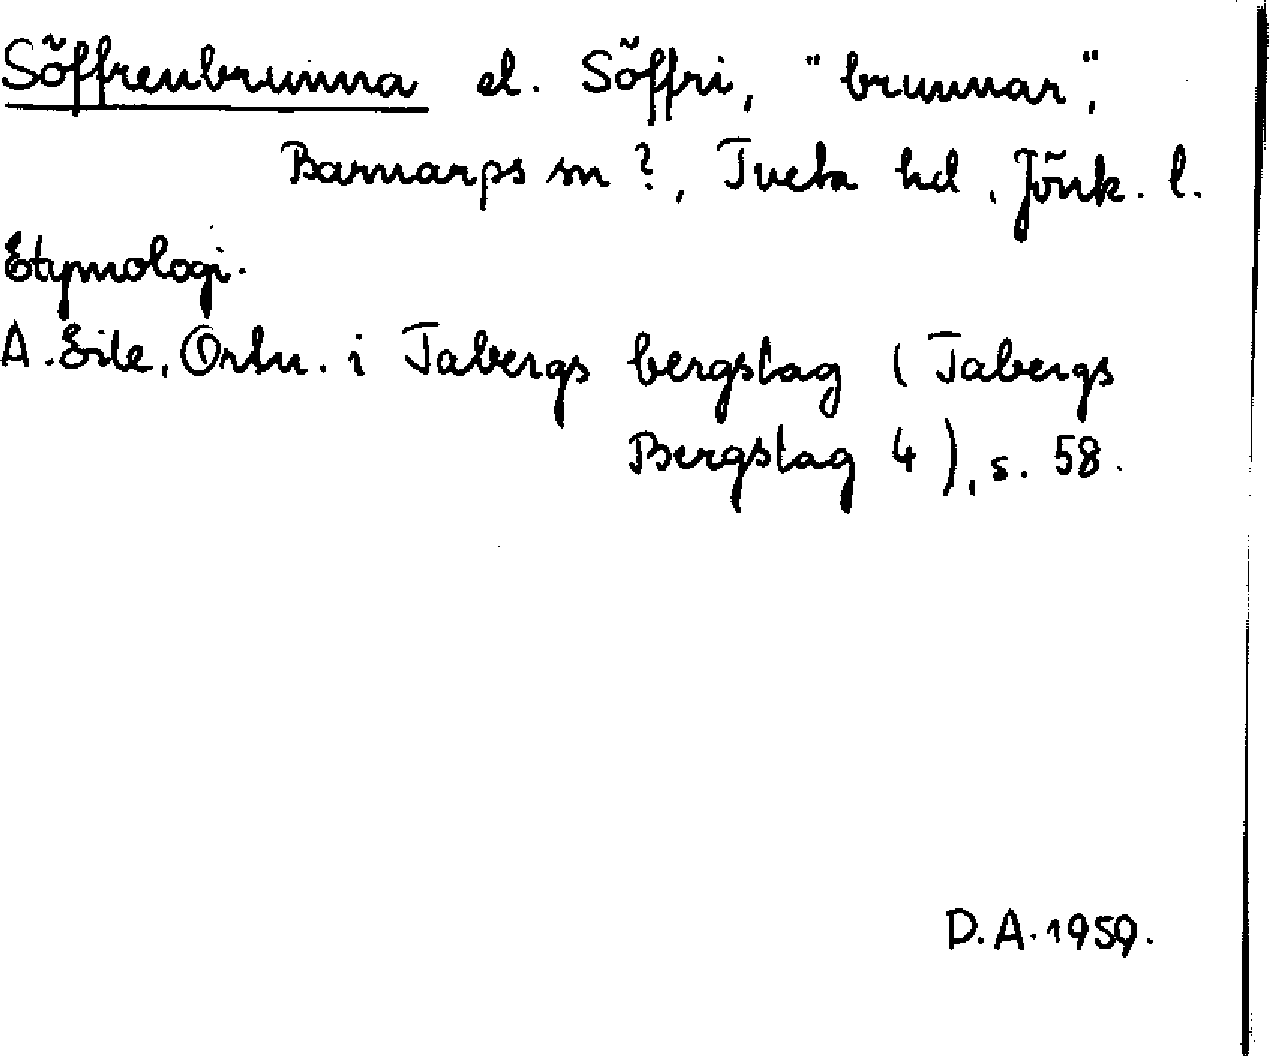 Söffrenbrunna el. Söffri, "brunnar",
Barnarps sn ?, Tveta hd, Jönk. l.
Etymologi.
A. Eile, Ortn. i Tabergs bergslag (Tabergs
Bergslag 4), s. 58.
D.A. 1959.